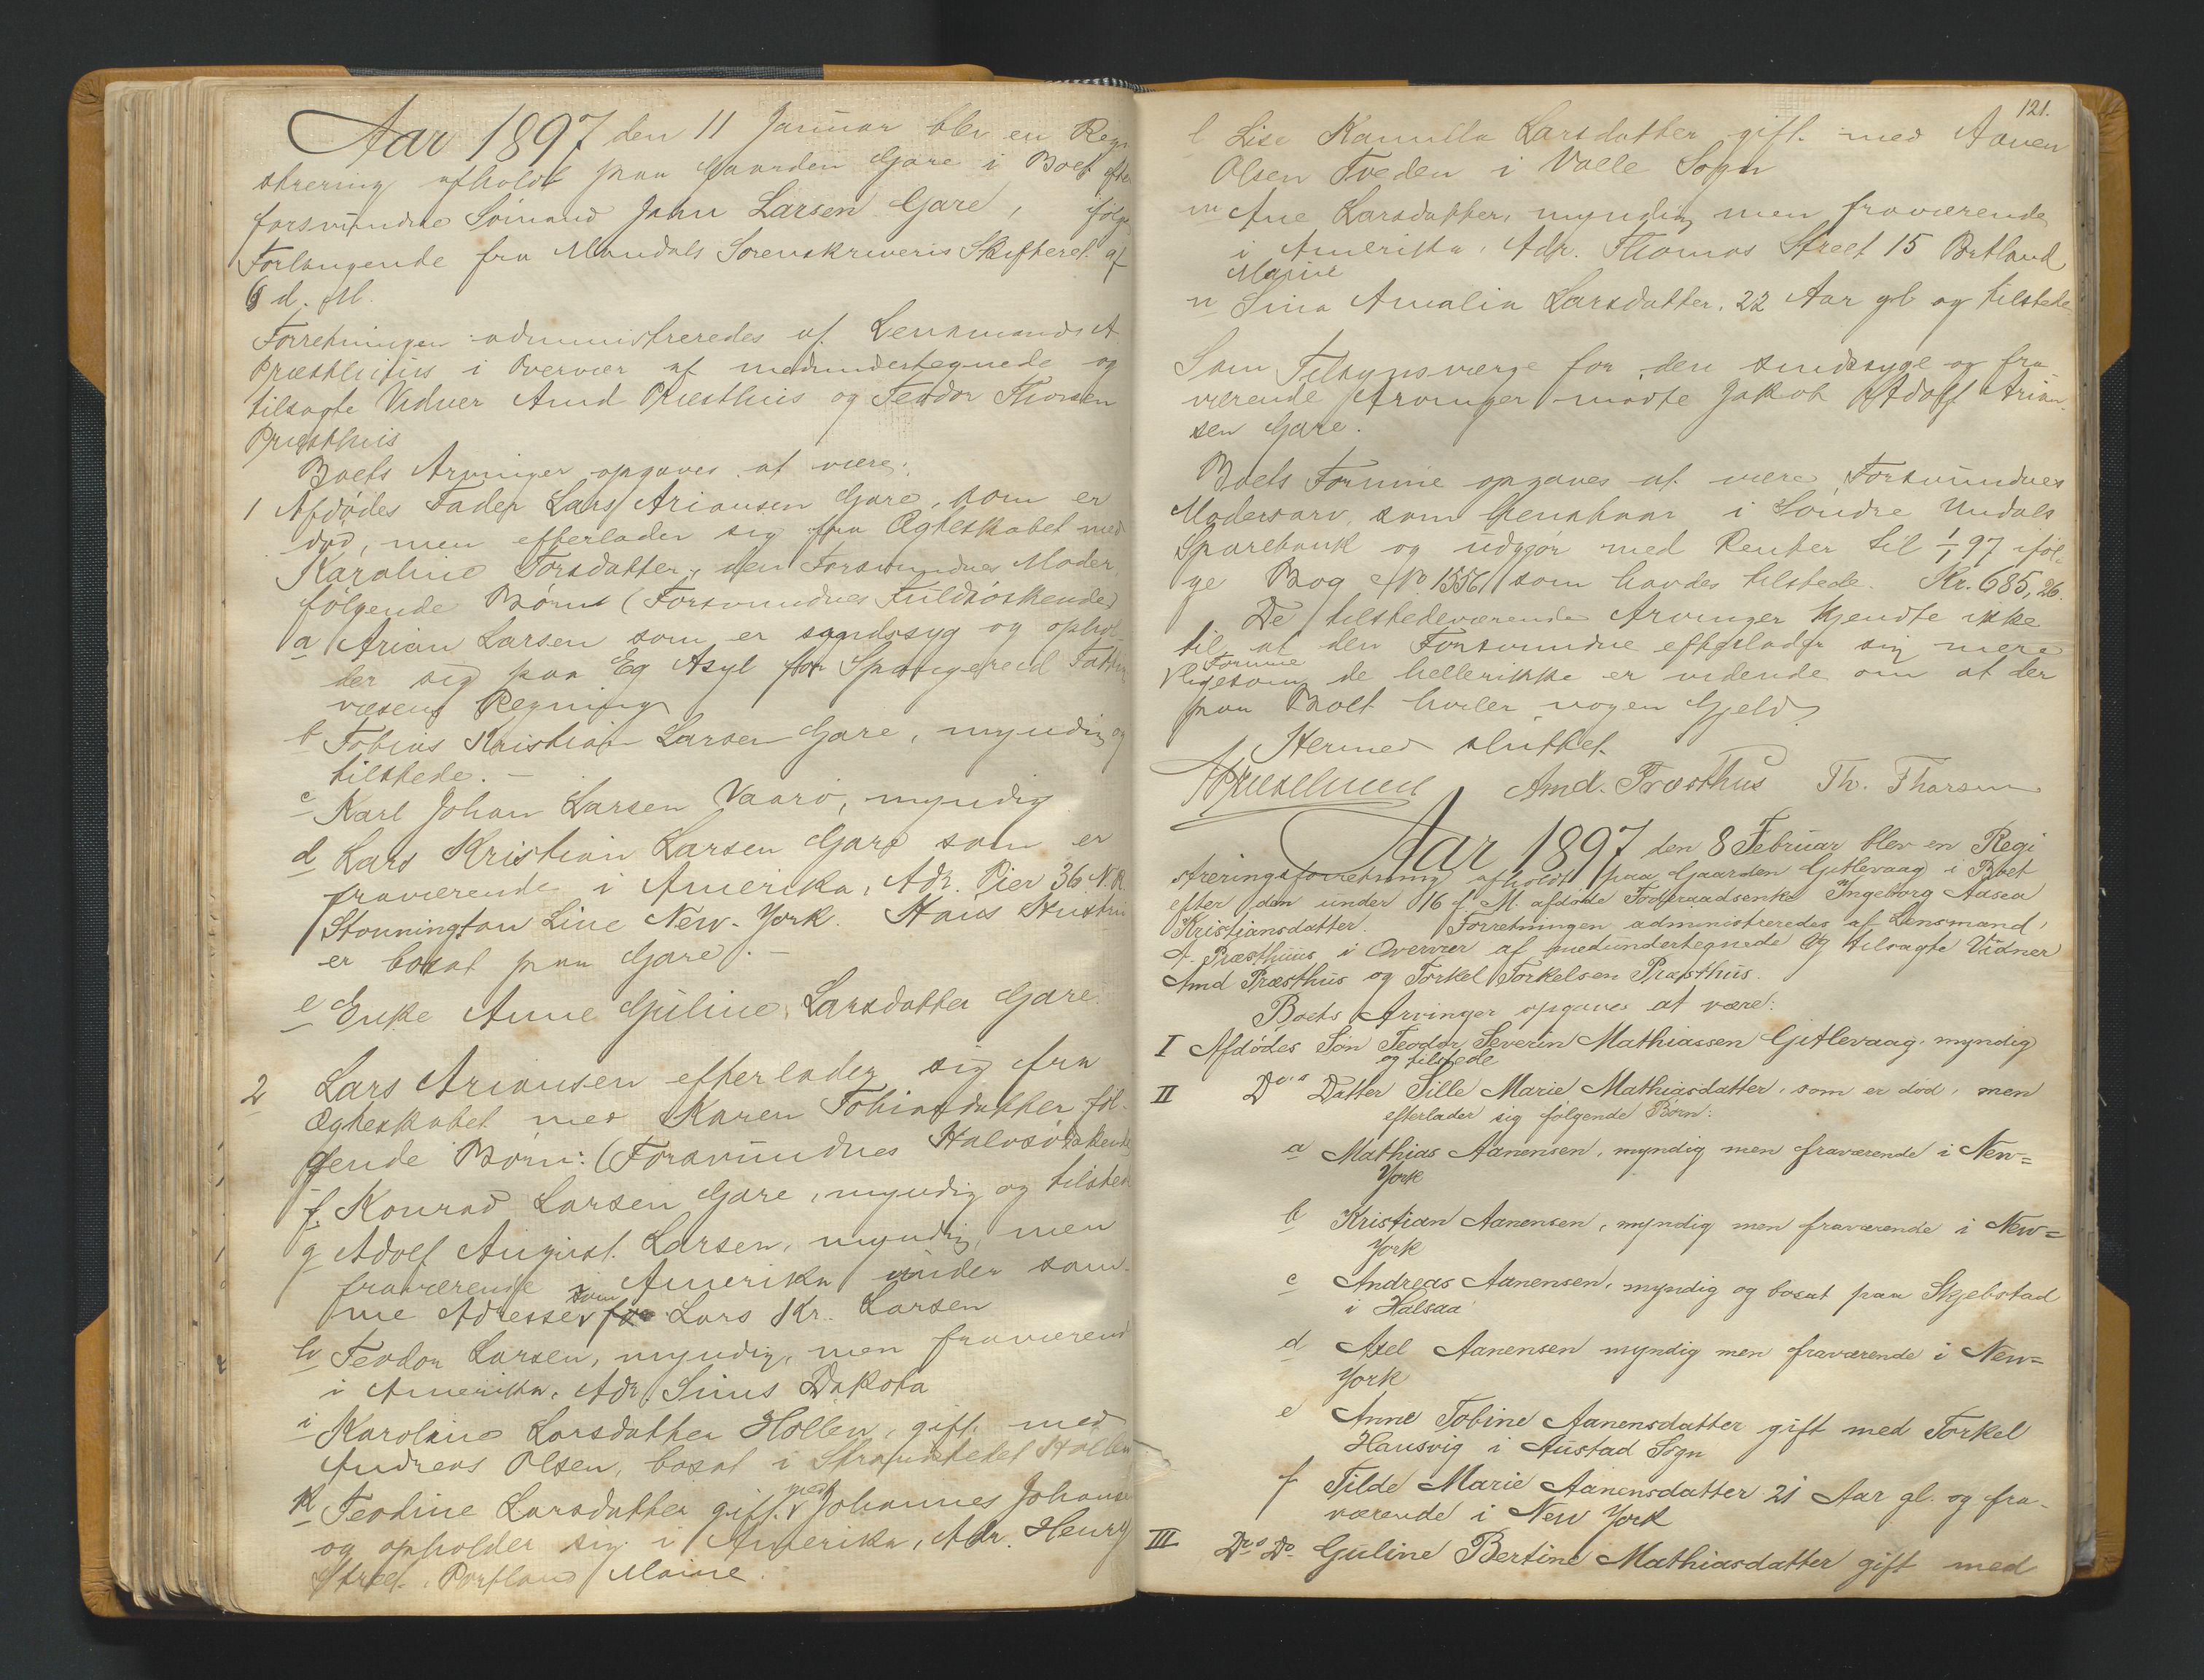 Aar 1897 den 11 Januar blev en Regi
strering afholdt paa Gaarden Gare i Boet efter
forsvundne Sömand Jahn Larsen Gare, ifölge
Forlangende fra Mandals Sorenskriveris Skifteret af
6 d. M.
Forretningen administreredes af Lensmand A
Præsthuus i Overvær af medundertegnede og
tilsagte Vidner Amd Præsthus og Teodor Thorsen
Præsthus
Boets Arvinger opgaves at være:
1 Afdödes Fader Lars Ariansen Gare, som er
död, men efterlader sig fra Ægteskabet med
Karoline Torsdatter, den Forsvundnes Moder,
fölgende Börn (Forsvundnes Fuldsöskende)
a Arian Larsen som er sindssyg og ophol-
der sig paa Eg Asyl for Spangereid Fattig
væsens Regning
b Tobias Kristian Larsen Gare, myndig og
tilstede. -
c Karl Johan Larsen Vaarö, myndig
d Lars Kristian Larsen Gare som er
fraværende i Amerika, Adr. Pier 36 N. R.
Stonnington Line New-York. Hans Hustru
er bosat paa Gare. -
e Enke Anne Guline Larsdatter Gare.
2 Lars Ariansen efterlader sig fra
Ægteskabet med Karen Tobiasdatter föl-
gende Börn: (Forsvundnes Halvsöskende
f. Konrad Larsen Gare, myndig og tilstede
g Adolf August Larsen, myndig, men
fraværende i Amerika under sam-
me Adresse som Lars Kr. Larsen
h Teodor Larsen, myndig, men fraværend
i Amerika, Adr. Sims Dakota
i Karoline Larsdatter Hollen, gift med
Andreas Olsen, bosat i Strandstedet Hollen
k Teodine Larsdatter gift med Johannes Johanse
og opholder sig i Amerika, Adr. Henry
Street. Portland Maine.
121.
l Lise Kamilla Larsdatter gift med Aanen
Olsen Tveden i Valle Sogn
m Ane Larsdatter, myndig men fraværende
i Amerika, Adr. Thomas Street 15 Portland
Maine
n Sina Amalia Larsdatter, 22 Aar gl. og tilstede
Som Tilsynsværge for den sindssyge og fra-
værende Arvinger mödte Jakob Adolf Arian-
sen Gare.
Boets Formue opgaves at være Forsvundnes
Mödrearv, som henstaar i Söndre Undals
Sparebank og udgjör med Renter til 1/1 97 iföl-
ge Bog No. 1556 som havdes tilstede. Kr. 685,26.
De tilstedeværende Arvinger kjendte ikke
til at den Forsvundne efterlader sig mere
Formue
ligesom de hellerikke er vidende om at der
paa Boet hviler nogen Gjeld.
Hermed sluttet.
APræsthuus Amd. Præsthus Th. Tharsen
Aar 1897 den 8 Februar blev en Regi
streringsforretning afholdt paa Gaarden Gitlevaag i Boet
efter den under 16 f. M. afdöde Föderaadsenke Ingeborg Aasea
Kristiansdatter. Forretningen administreredes af Lensmand
A. Præsthuus i Overvær af medundertegnede og tilsagte Vidner
Amd Præsthus og Torkel Torkelsen Præsthus.
Boets Arvinger opgaves at være:
I Afdödes Sön Teodor Severin Mathiassen Gitlevaag, myndig
og tilstede
II Do's Datter Sille Marie Mathiasdatter, som er död, men
efterlader sig fölgende Börn:
a Mathias Aanensen, myndig men fraværende i New=
York
b Kristian Aanensen, myndig men fraværende i New=
York
c Andreas Aanensen, myndig og bosat paa Skjebstad
i Halsaa
d Axel Aanensen myndig men fraværende i New=
York
e Anne Tobine Aanensdatter gift med Torkel
Hausvig i Austad Sogn
f Tilde Marie Aanensdatter 21 Aar gl. og fra-
værende i New York
III Do's Do Guline Bertine Mathiasdatter gift med